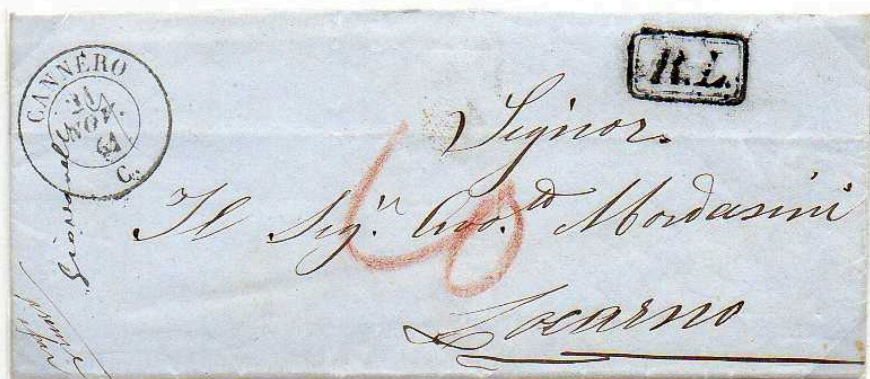 CANNERO
21
NOV.
61
C.
R.L.
Signor
Il Sig.n Avo.to Mordasini
Locarno